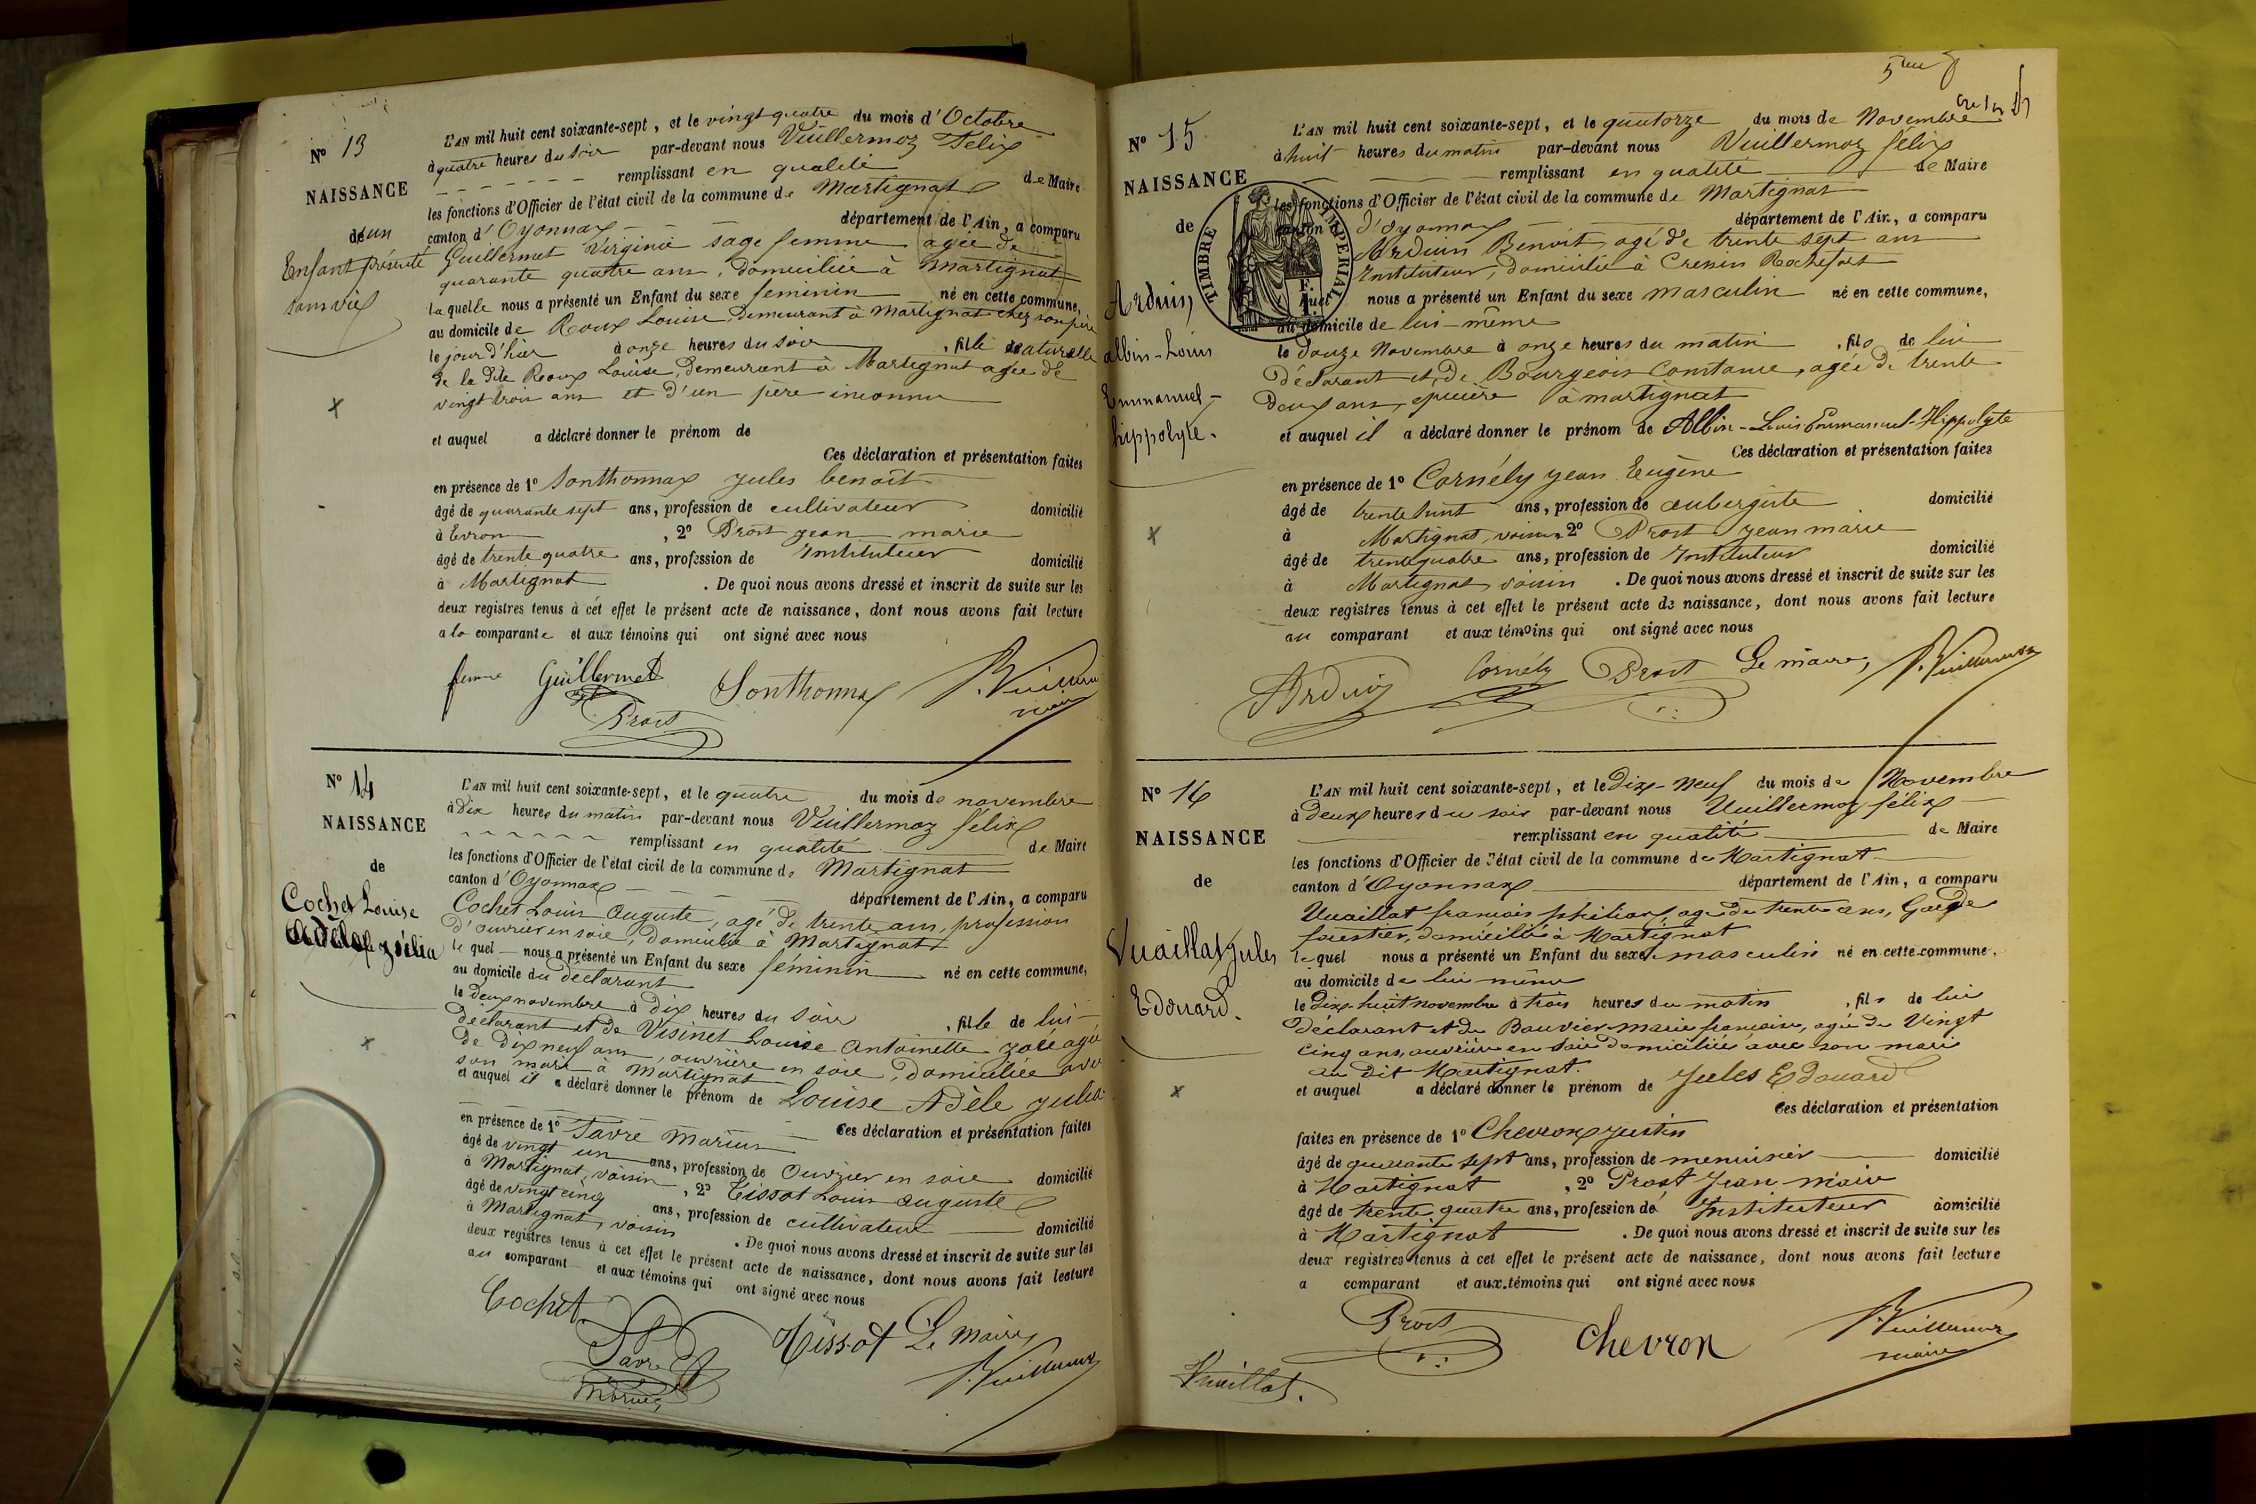 N° 13
NAISSANCE
de un
Enfant présenté
sans vie
L'AN mil huit cent soixante-sept, et le vingt quatre du mois d'Octobre
à quatre heures du soir par-devant nous Vuillermoz Félix
remplissant en qualité de Maire
les fonctions d'Officier de l'état civil de la commune de Martignat
canton d'Oyonnax département de l'Ain, a comparu
Guillermet Virginie sage femme agée de
quarante quatre ans, domiciliée à Martignat
laquelle nous a présenté un Enfant du sexe feminin né en cette commune,
au domicile de Roux Louise, demeurant à Martignat chez son père
le jour d'hier à onze heures du soir, fille naturelle
de la dite Roux Louise, demeurant à Martignat agée de
vingt trois ans et d'un père inconnu
et auquel a déclaré donner le prénom de
Ces déclaration et présentation faites
en présence de 1° Sonthonnax jules benoit
âgé de quarante sept ans, profession de cultivateur domicilié
à Evron, 2° Prost jean marie
âgé de trente quatre ans, profession de Instituteur domicilié
à Martignat. De quoi nous avons dressé et inscrit de suite sur les
deux registres tenus à cet effet le présent acte de naissance, dont nous avons fait lecture
a la comparante et aux témoins qui ont signé avec nous
femme Guillermet Sonthonnax Vuillermoz
maire
Prost
N° 14
NAISSANCE
de
Cochet Louise
Adèle julia
L'AN mil huit cent soixante-sept, et le quatre du mois de novembre
à dix heures du matin par-devant nous Vuillermoz félix
remplissant en qualité de Maire
les fonctions d'Officier de l'état civil de la commune de Martignat
canton d'Oyonnax département de l'Ain, a comparu
Cochet Louis Auguste, agé de trente ans, profession
d'ouvrier en soie, domicilié à Martignat
lequel nous a présenté un Enfant du sexe féminin né en cette commune,
au domicile du déclarant
le deux novembre à dix heures du soir, fille de lui
déclarant et de Visinet Louise Antoinette agée
de dix neuf ans, ouvrière en soie, domiciliée avec
son mari à Martignat
et auquel il a déclaré donner le prénom de Louise Adèle julia
Ces déclaration et présentation faites
en présence de 1° Favre Marius
âgé de vingt un ans, profession de Ouvrier en soie domicilié
à Martignat, voisin, 2° Tissot Louis auguste
âgé de vingt cinq ans, profession de cultivateur domicilié
à Martignat, voisin. De quoi nous avons dressé et inscrit de suite sur les
deux registres tenus à cet effet le présent acte de naissance, dont nous avons fait lecture
au comparant et aux témoins qui ont signé avec nous
Cochet Tissot Le Maire
Favre Vuillermoz
Marius
5me
N° 15
NAISSANCE
de
Arduin
albin-Louis
Emmanuel-
hippolyte.
TIMBRE IMPERIAL
L'AN mil huit cent soixante-sept, et le quatorze du mois de Novembre
à huit heures du matin par-devant nous Vuillermoz félix
remplissant en qualité de Maire
les fonctions d'Officier de l'état civil de la commune de Martignat
canton d'Oyonnax département de l'Ain, a comparu
Arduin Benoit, agé de trente sept ans
Instituteur, domicilié à Cressin Rochefort
lequel nous a présenté un Enfant du sexe masculin né en cette commune,
au domicile de lui-même
le douze Novembre à onze heures du matin, fils de lui
Déclarant et de Bourgeois Constance, agée de trente
deux ans, épicière à martignat
et auquel il a déclaré donner le prénom de Albin-Louis Emmanuel-Hippolyte
Ces déclaration et présentation faites
en présence de 1° Cornély jean Eugène
âgé de trente huit ans, profession de aubergiste domicilié
à Martignat, voisin, 2° Prost jean marie
âgé de trente quatre ans, profession de Instituteur domicilié
à Martignat, voisin. De quoi nous avons dressé et inscrit de suite sur les
deux registres tenus à cet effet le présent acte de naissance, dont nous avons fait lecture
au comparant et aux témoins qui ont signé avec nous
Arduin Cornély Prost Le maire, Vuillermoz
N° 16
NAISSANCE
de
Vuaillat jules
Edouard.
L'AN mil huit cent soixante-sept, et le Dix-Neuf du mois de Novembre
à deux heures du soir par-devant nous Vuillermoz félix
remplissant en qualité de Maire
les fonctions d'Officier de l'état civil de la commune de Martignat
canton d'Oyonnax département de l'Ain, a comparu
Vuaillat francois agé de trente ans, Garde
forestier, domicilié à Martignat
lequel nous a présenté un Enfant du sexe masculin né en cette commune.
au domicile de lui même
le dix-huit novembre à trois heures du matin, fils de lui
Déclarant et de Bouvier marie françoise, agée de Vingt
cinq ans, ouvrière en soie domiciliée avec son mari
au dit Martignat.
et auquel a déclaré donner le prénom de Jules Edouard
Ces déclaration et présentation
faites en présence de 1° Chevron justin
âgé de quarante sept ans, profession de menuisier domicilié
à Martignat, 2° Prost Jean marie
âgé de trente quatre ans, profession de Instituteur domicilié
à Martignat. De quoi nous avons dressé et inscrit de suite sur les
deux registres tenus à cet effet le présent acte de naissance, dont nous avons fait lecture
a comparant et aux témoins qui ont signé avec nous
Prost Chevron Vuillermoz
maire
Vuaillat.